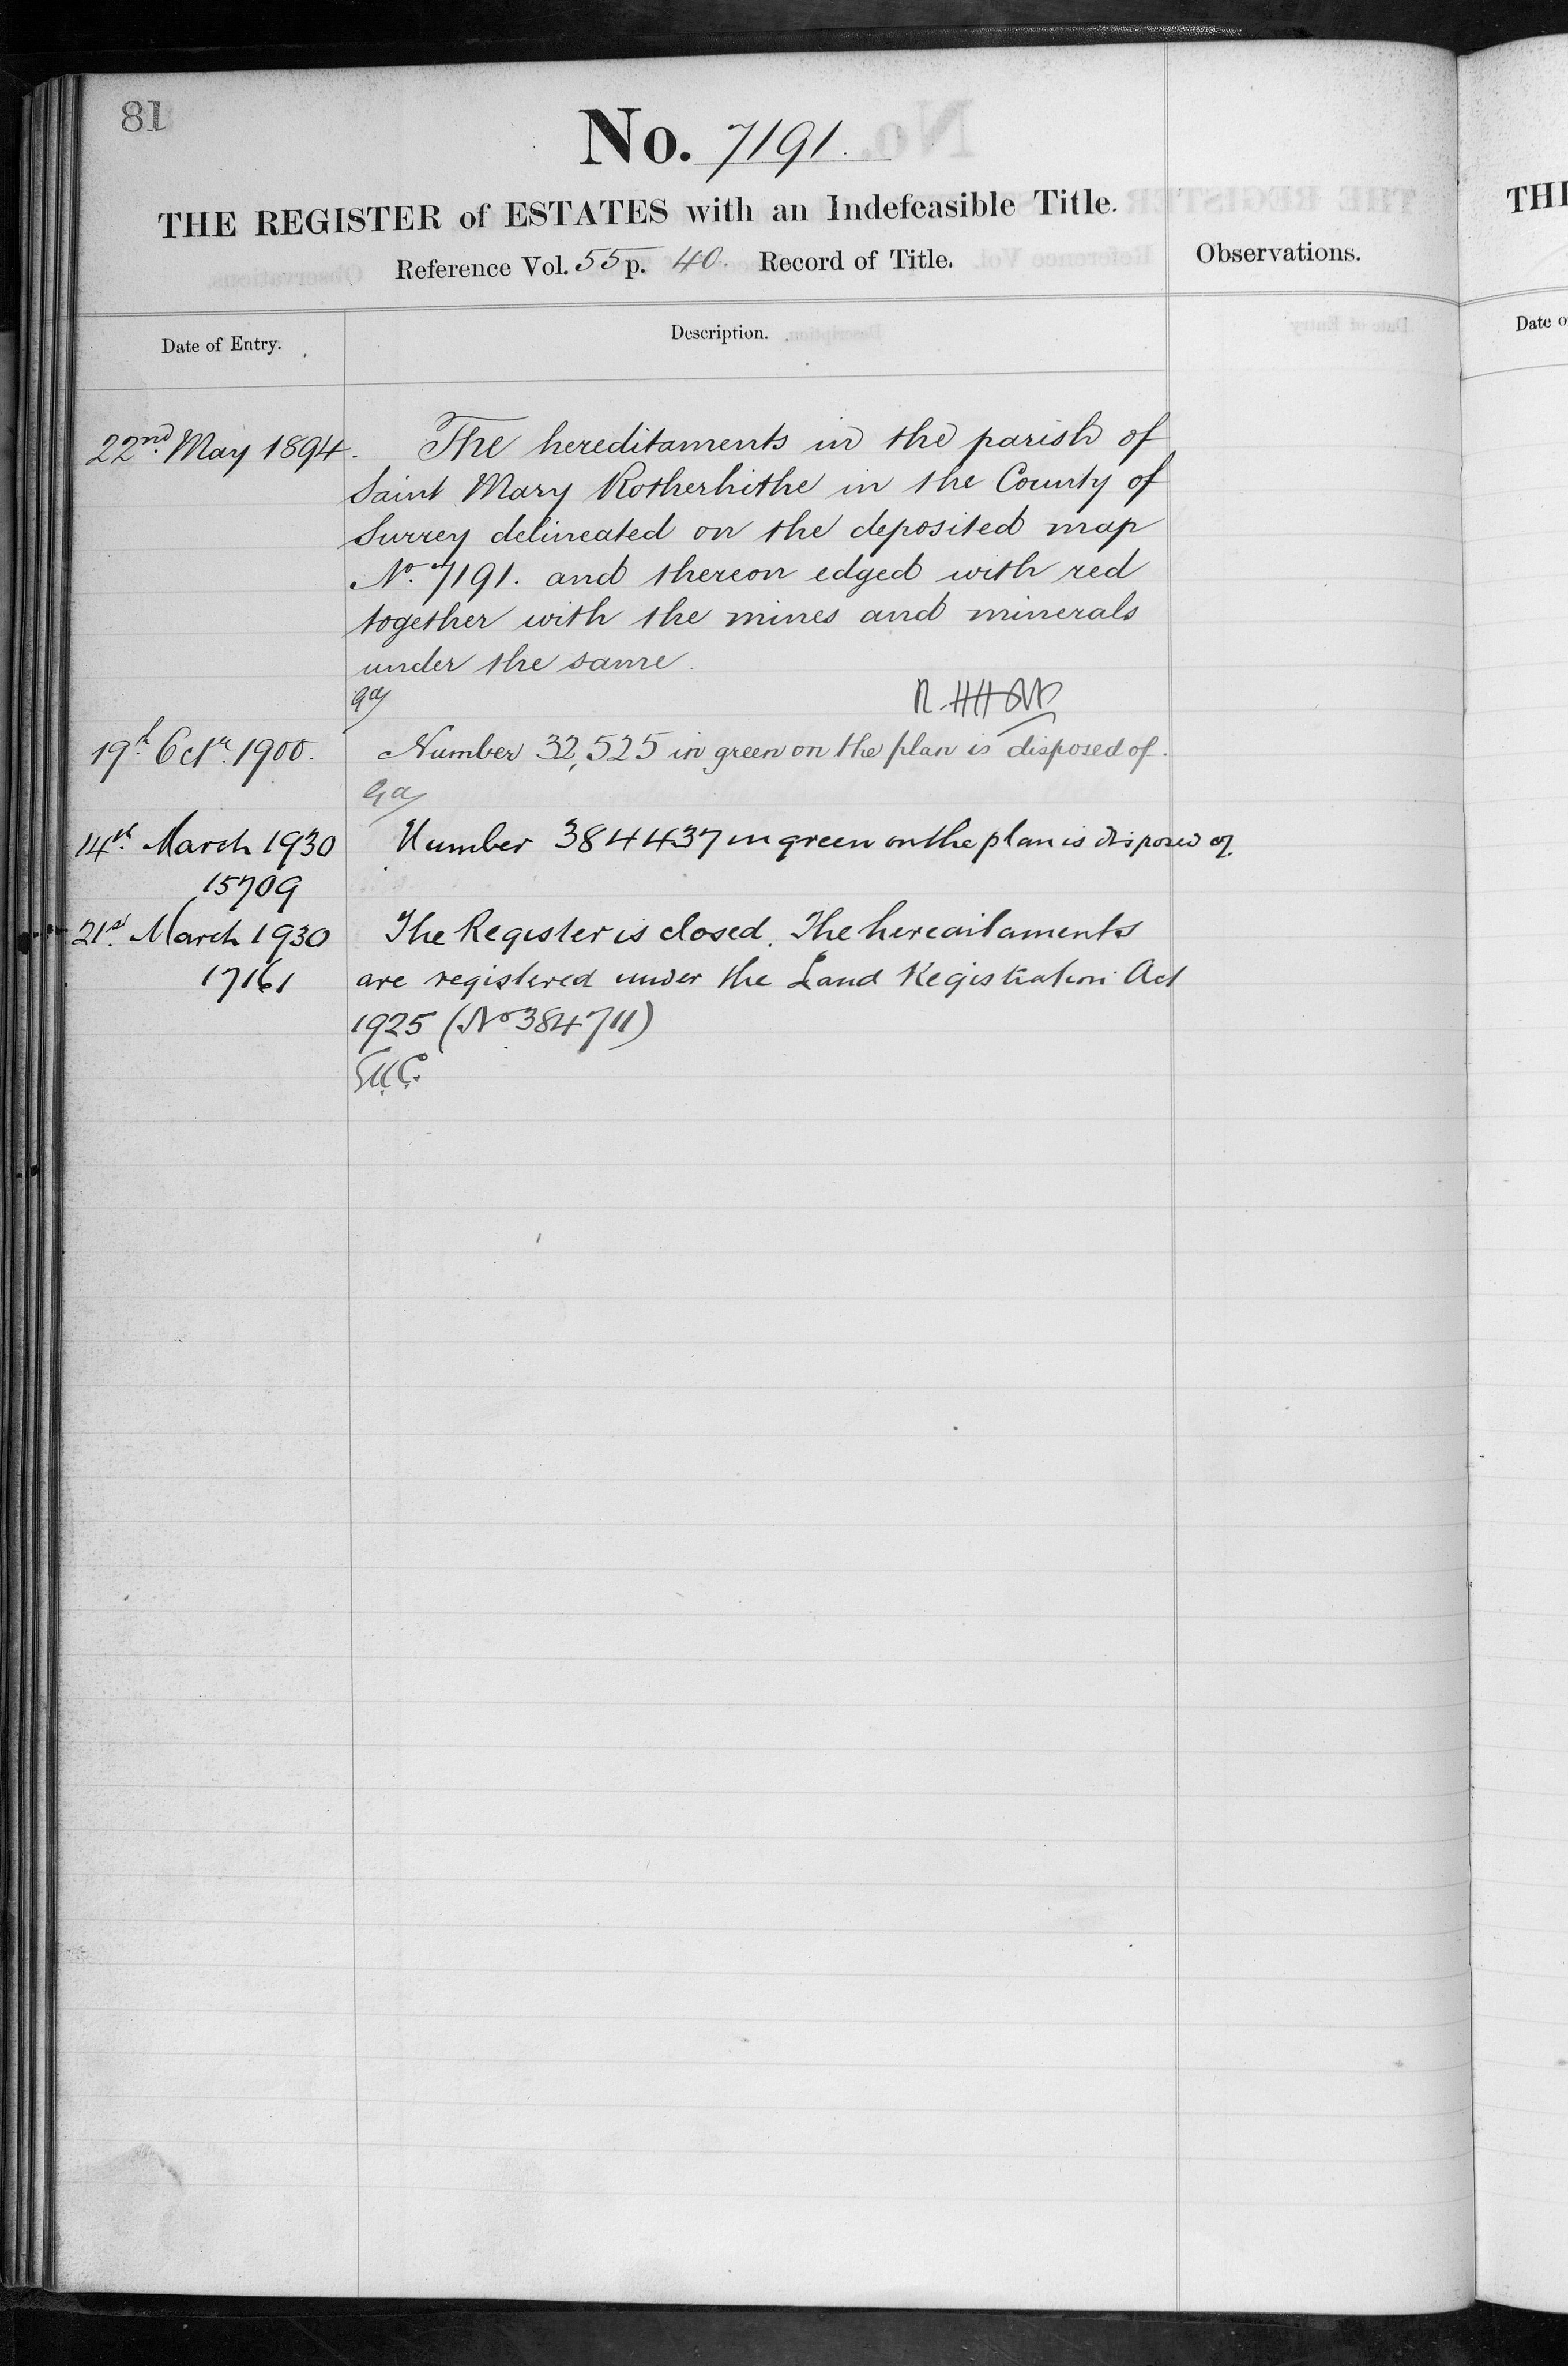 81
No. 7191.
THE REGISTER of ESTATES with an Indefeasible Title.
Reference Vol. 55 p. 40. Record of Title.
Observations.
Date of Entry.
Description.
22nd May 1894. The hereditaments in the parish of
Saint Mary Rotherhithe in the County of
Surrey delineated on the deposited map
No. 7191. and thereon edged with red
together with the mines and minerals
under the same.
19th Octr. 1900. Number 32,525 in green on the plan is disposed of.
14th March 1930 Number 384437 in green on the plan is disposed of.
15709
21st March 1930 The Register is closed. The hereditaments
17161 are registered under the Land Registration Act
1925 (No 384711)
THE
Date o